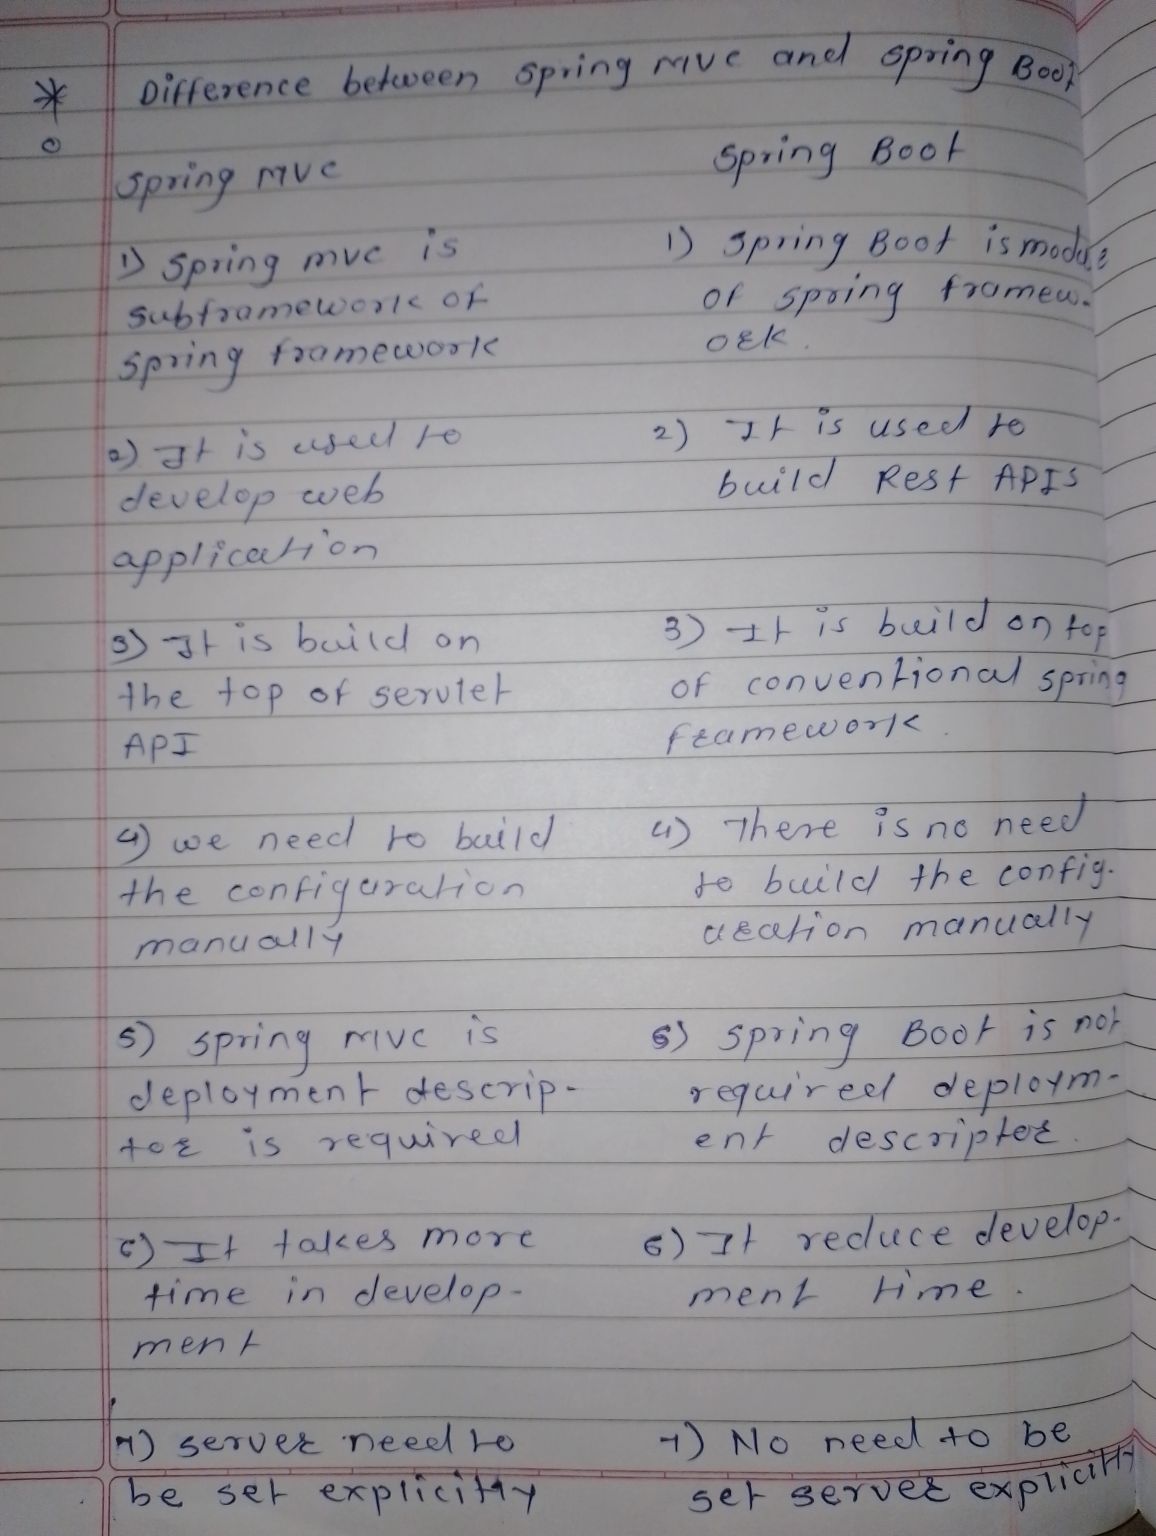 * Difference between Spring MVC and Spring Boot
Spring MVC
Spring Boot
1) Spring MVC is
subframework of
Spring framework
1) Spring Boot is module
of spring framew-
ork.
2) It is used to
develop web
application
2) It is used to
build Rest APIS
3) It is build on
the top of servlet
API
3) It is build on top
of conventional spring
framework.
4) we need to build
the configuration
manually
4) There is no need
to build the config-
uration manually
5) Spring MVC is
deployment descrip-
tor is required
5) Spring Boot is not
required deploym-
ent descriptor.
6) It takes more
time in develop-
ment
6) It reduce develop-
ment time.
7) server need to
be set explicitly
7) No need to be
set server explicitly